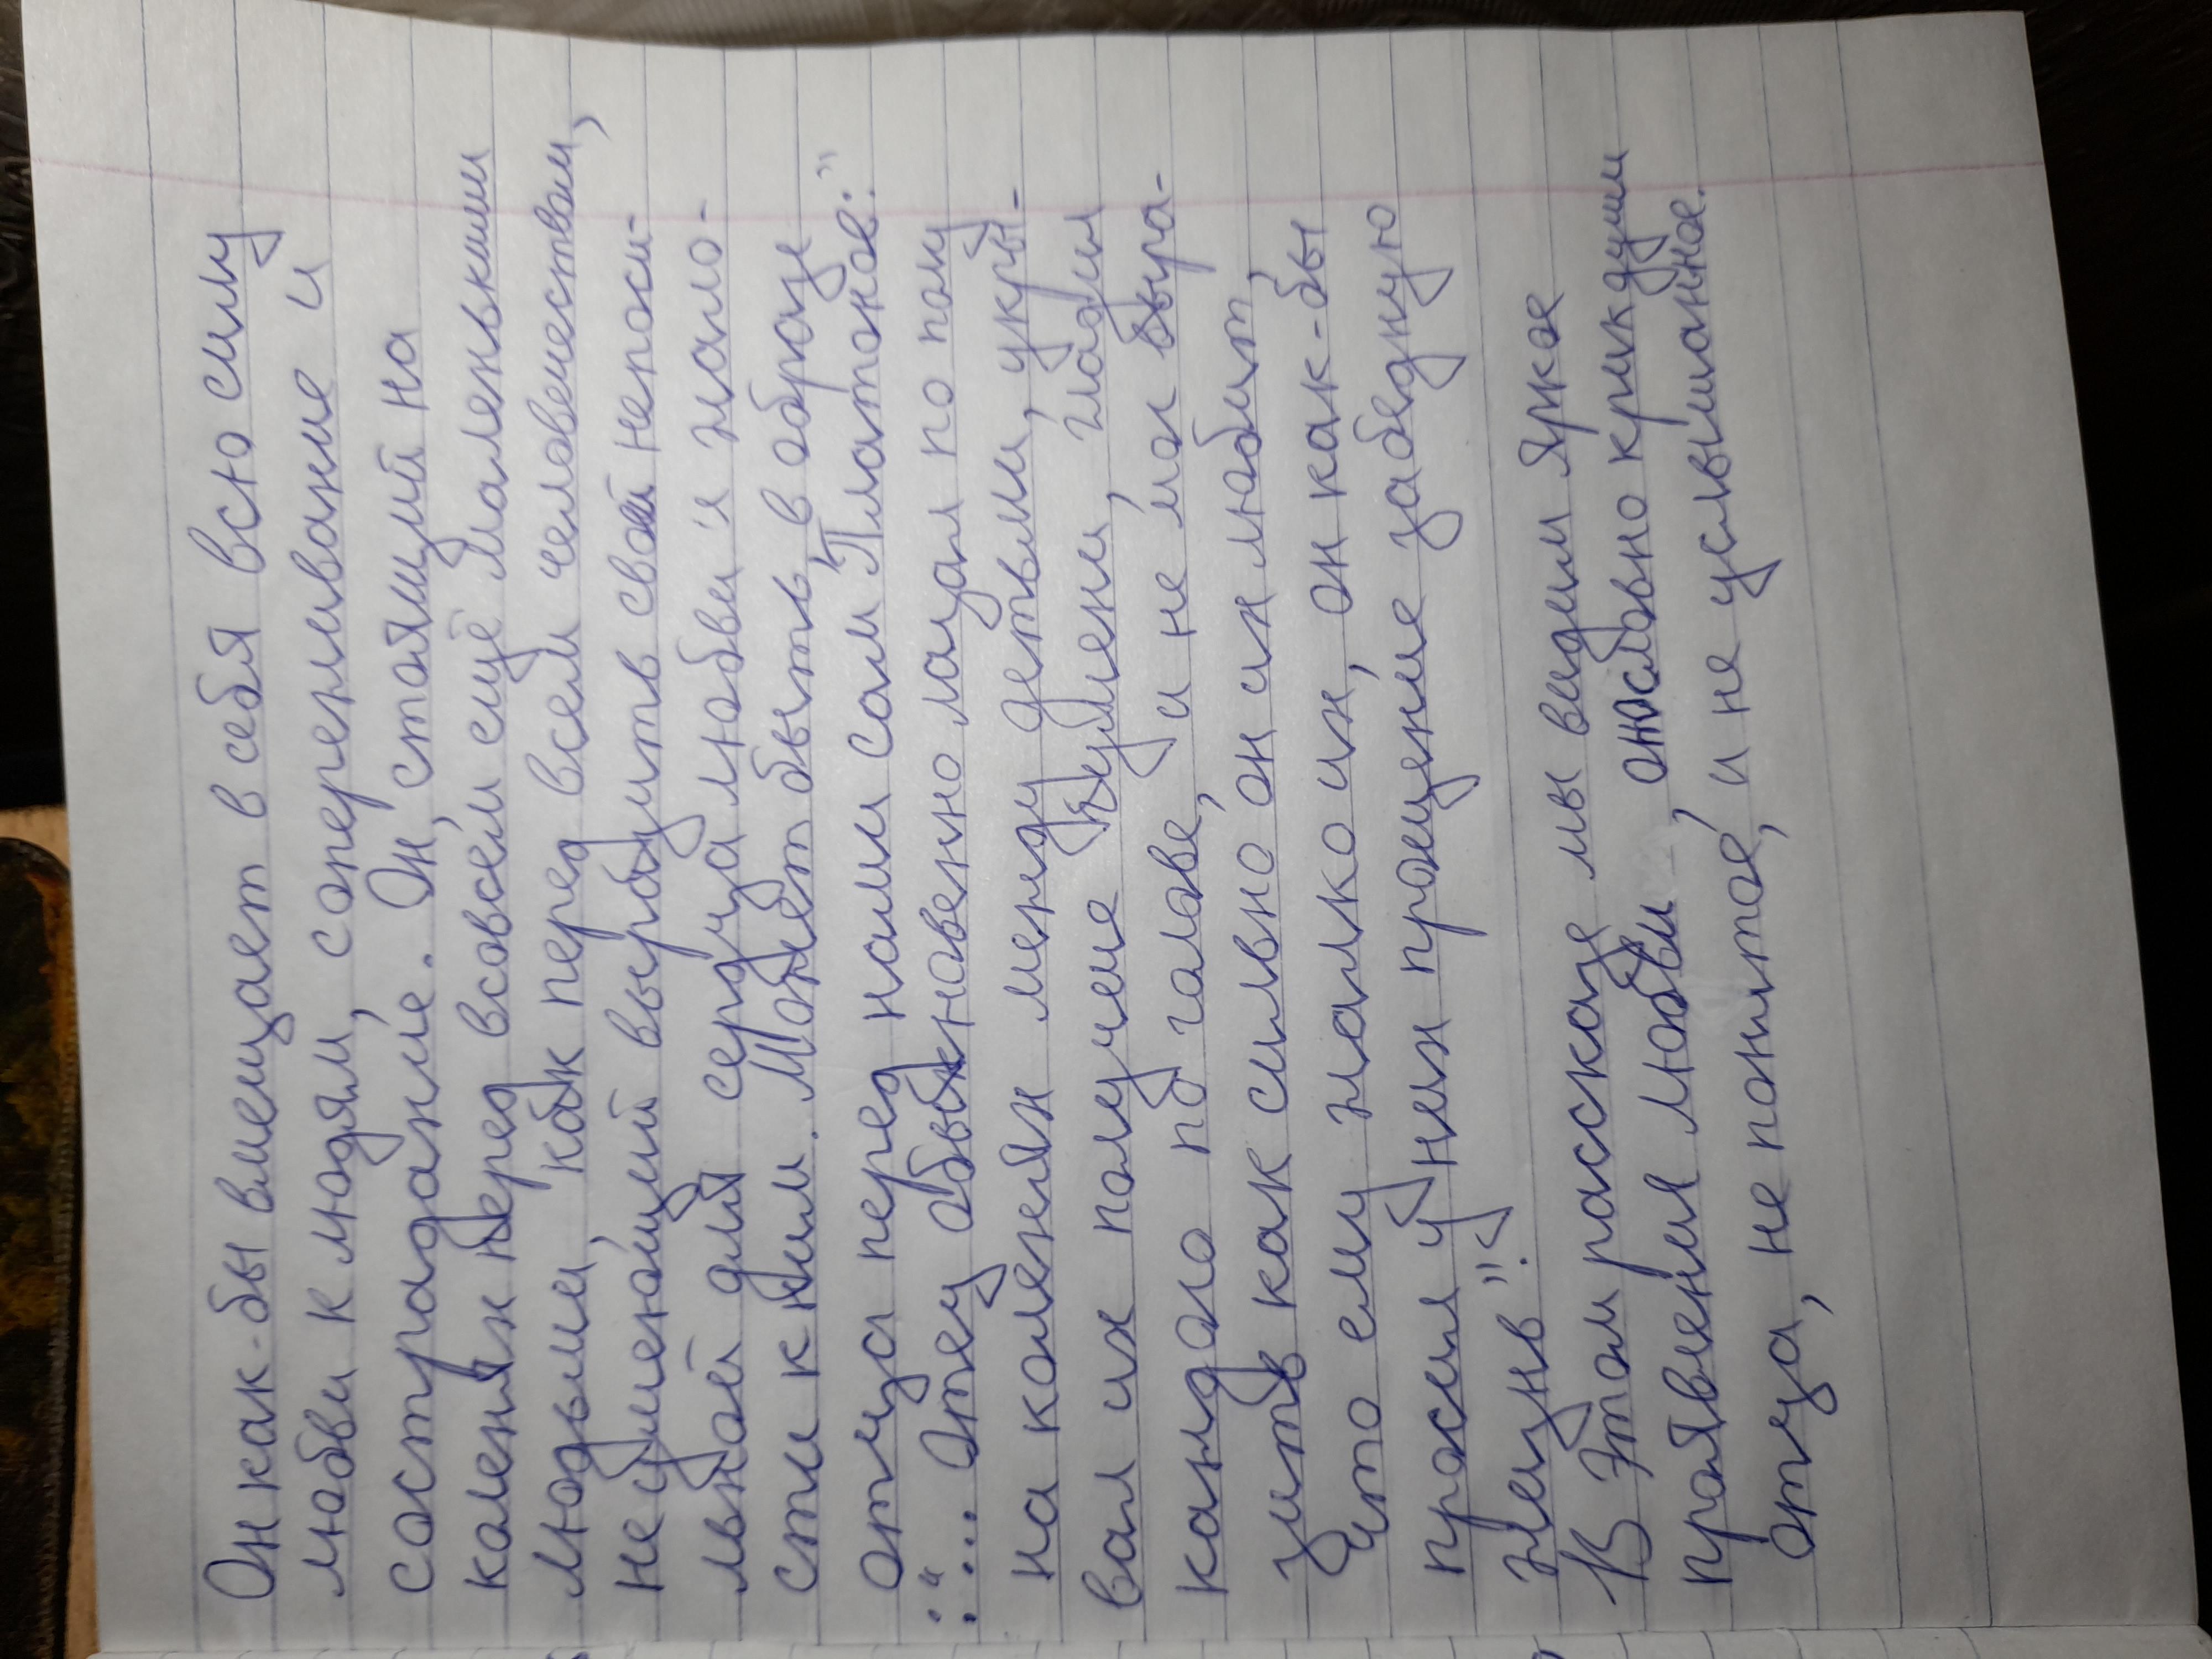 Он как-бы вмещает в себя всю силу
любви к людям, сопереживание и
сострадание. Он, стоящий на
коленях перед совсем ещё маленькими
людьми, как перед всем человечеством,
не умеющий выразить своей непоси-
льной для сердца любви и жало-
сти к ним. Может быть, в образе
отца перед нами сам "Платонов:"
:"... Отец обыкновенно лазал по полу
на коленях между детьми, укры-
вал их получше курмени, гладил
каждого по голове, и не мог выра-
зить как сильно он их любит,
что ему жалко их, он как-бы
просил у них прощение за бедную
жизнь".
В этом рассказе мы видим яркое
проявления любви, он словно крик души
отца, не понятое, и не услышанное.